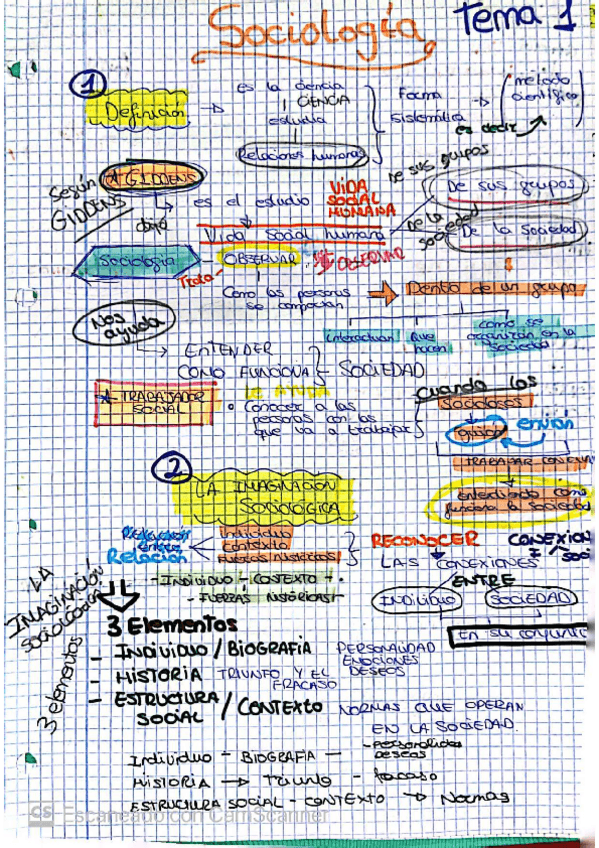 Sociología Tema 1
1
Definición → es la ciencia
CIENCIA
estudia
Relaciones humanas
Forma
sistemática
método
científico
es decir
Según
GIDDENS
* GIDDENS
dijo
es el estudio
VIDA
SOCIAL
HUMANA
Vida social humana
De sus grupos
De sus grupos
De la
sociedad
De la sociedad
Sociología
Trata
OBSERVAR
OBSERVAR
Como las personas
se comportan
→ Dentro de un grupo
interactuan
que
hacen
como se
organizan en la
sociedad
Nos
ayuda
→ ENTENDER
COMO FUNCIONA
SOCIEDAD
* TRABAJADOR
SOCIAL
LE AYUDA
• Conocer a las
personas con las
que va a trabajar
Cuando los
sociologos
guian
envian
TRABAJAR CON
entendiendo como
funciona la sociedad
2
LA IMAGINACIÓN
SOCIOLÓGICA
Relación
Individuo
contexto
fuerzas históricas
- INDIVIDUO - CONTEXTO +
- FUERZAS HISTÓRICAS
RECONOCER
LAS CONEXIONES
ENTRE
INDIVIDUO
SOCIEDAD
EN SU CONJUNTO
CONEXION
LA
IMAGINACIÓN
SOCIOLÓGICA
3 elementos
3 Elementos
- INDIVIDUO / BIOGRAFÍA PERSONALIDAD
EMOCIONES
DESEOS
- HISTORIA TRIUNFO Y EL
FRACASO
- ESTRUCTURA / CONTEXTO NORMAS QUE OPERAN
SOCIAL
EN LA SOCIEDAD.
Individuo - BIOGRAFÍA - - personalidad
deseos
HISTORIA → Triunfo - fracaso
ESTRUCTURA SOCIAL - CONTEXTO → Normas
CS Escaneado con CamScanner